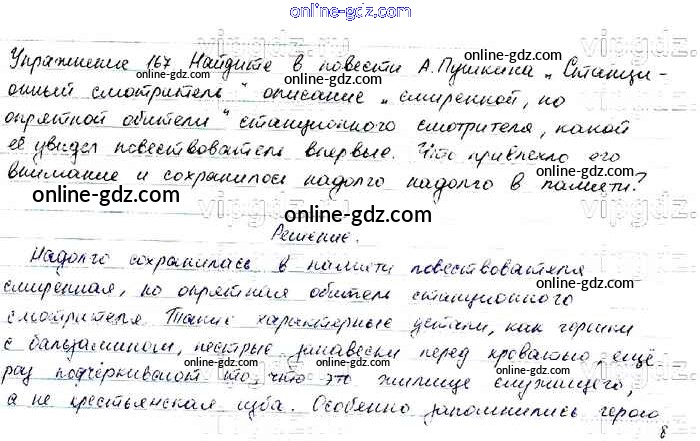 online-gdz.com
Упражнение 167. Найдите в повести А.Пушкина „Станци-
онный смотритель" описание „смиренной, но
опрятной обители" станционного смотрителя, какой
её увидел повествователь впервые. Что привлекло его
внимание и сохранилось надолго надолго в памяти?
Решение.
Надолго сохранилась в памяти повествователя
смиренная, но опрятная обитель станционного
смотрителя. Такие характерные детали, как горшки
с бальзамином, пестрые занавески перед кроватью, ещё
раз подчёркивают то, что это жилище служищего,
а не крестьянская изба. Особенно запомнились герою
8